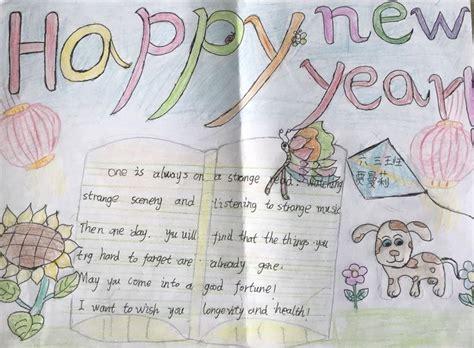 Happy new
year!
one is always on a strange road. watching
strange scenery and listening to strange music
Then one day. you will find that the things you
try hard to forget are already gone.
May you come into a good fortune!
I want to wish you longevity and health!
六三王班
莫曼莉